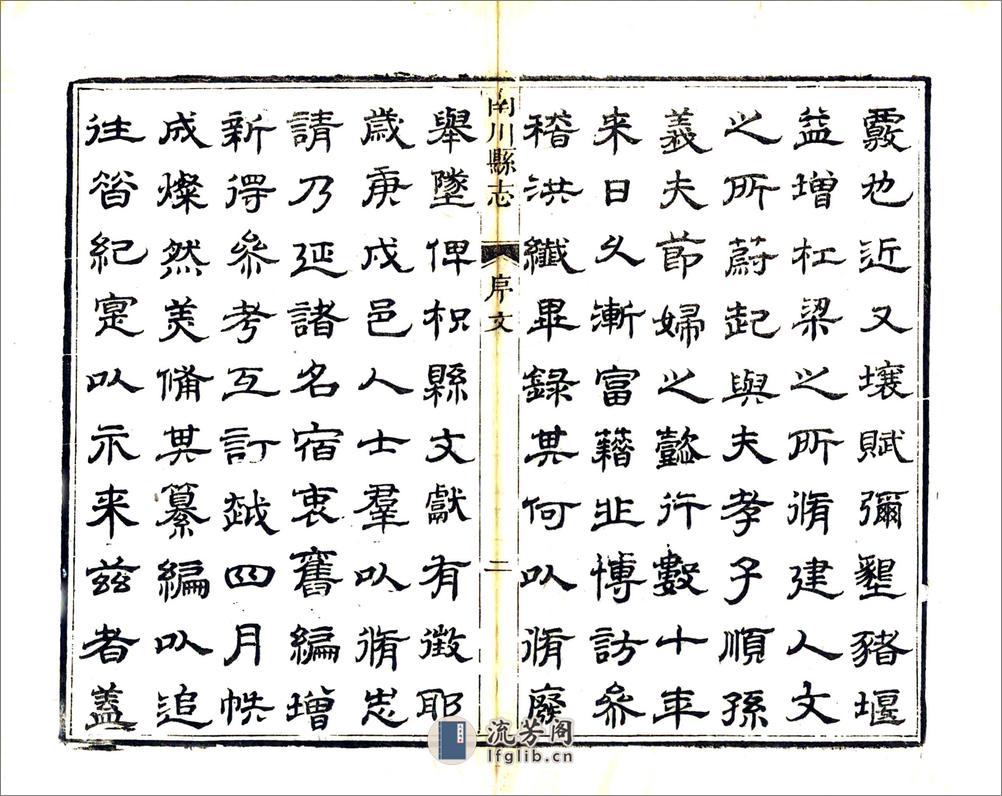 覈也近又壤賦彌墾豬堰
益增杠梁之所脩建人文
之所蔚起與夫孝子順孫
義夫節婦之懿行數十年
来日久漸富藉非博訪參
稽洪纖畢錄其何以脩廢
南川縣志 序文 二
舉墜俾枳縣文獻有徵耶
歲庚戌邑人士羣以脩志
請乃延諸名宿衷舊編增
新得參考互訂越四月帙
成燦然美備其纂編以追
往昔紀寔以示来兹者蓋
流芳阁
lfglib.cn